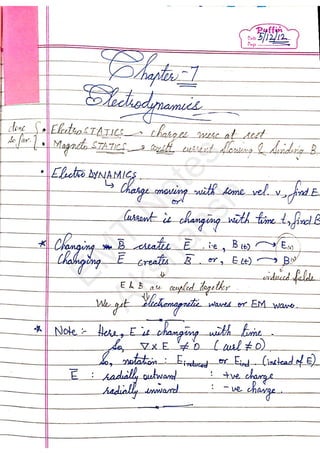 Puffin
Date 5/12/12
Page
Chapter - 7
Electrodynamics
done so far
• ElectroSTATICS → charges were at rest
• Magneto STATICS → const current flowing & finding B.
• Electro DYNAMICS →
Charge moving with some vel. v, find E
or
Current is changing with time t, find B
* Changing B creates E i.e, B(t) → E(t)
Changing E creates B or, E(t) → B(t)
induced fields
E & B are coupled together
We get electromagnetic waves or EM wave.
* Note :- Here, E is changing with time.
So, ∇ x E ≠ 0 (curl ≠ 0)
So, notation: E induced or Eind. (instead of E)
E : radially outward : +ve charge
radially inward : -ve charge.